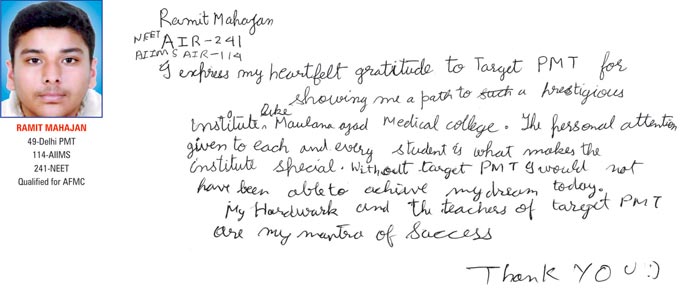 RAMIT MAHAJAN
49-Delhi PMT
114-AIIMS
241-NEET
Qualified for AFMC
Ramit Mahajan
NEET AIR-241
AIIMS AIR-114
I express my heartfelt gratitude to Target PMT for
showing me a path to such a prestigious
institute like Maulana azad Medical college. The personal attention
given to each and every student is what makes the
institute special. Without target PMT I would not
have been able to achieve my dream today.
My Hardwark and the teachers of target PMT
are my mantra of Success
Thank YOU :)